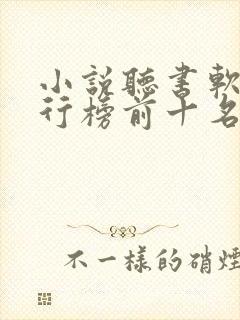 小說聽書軟
行榜前十名
不一樣的硝煙